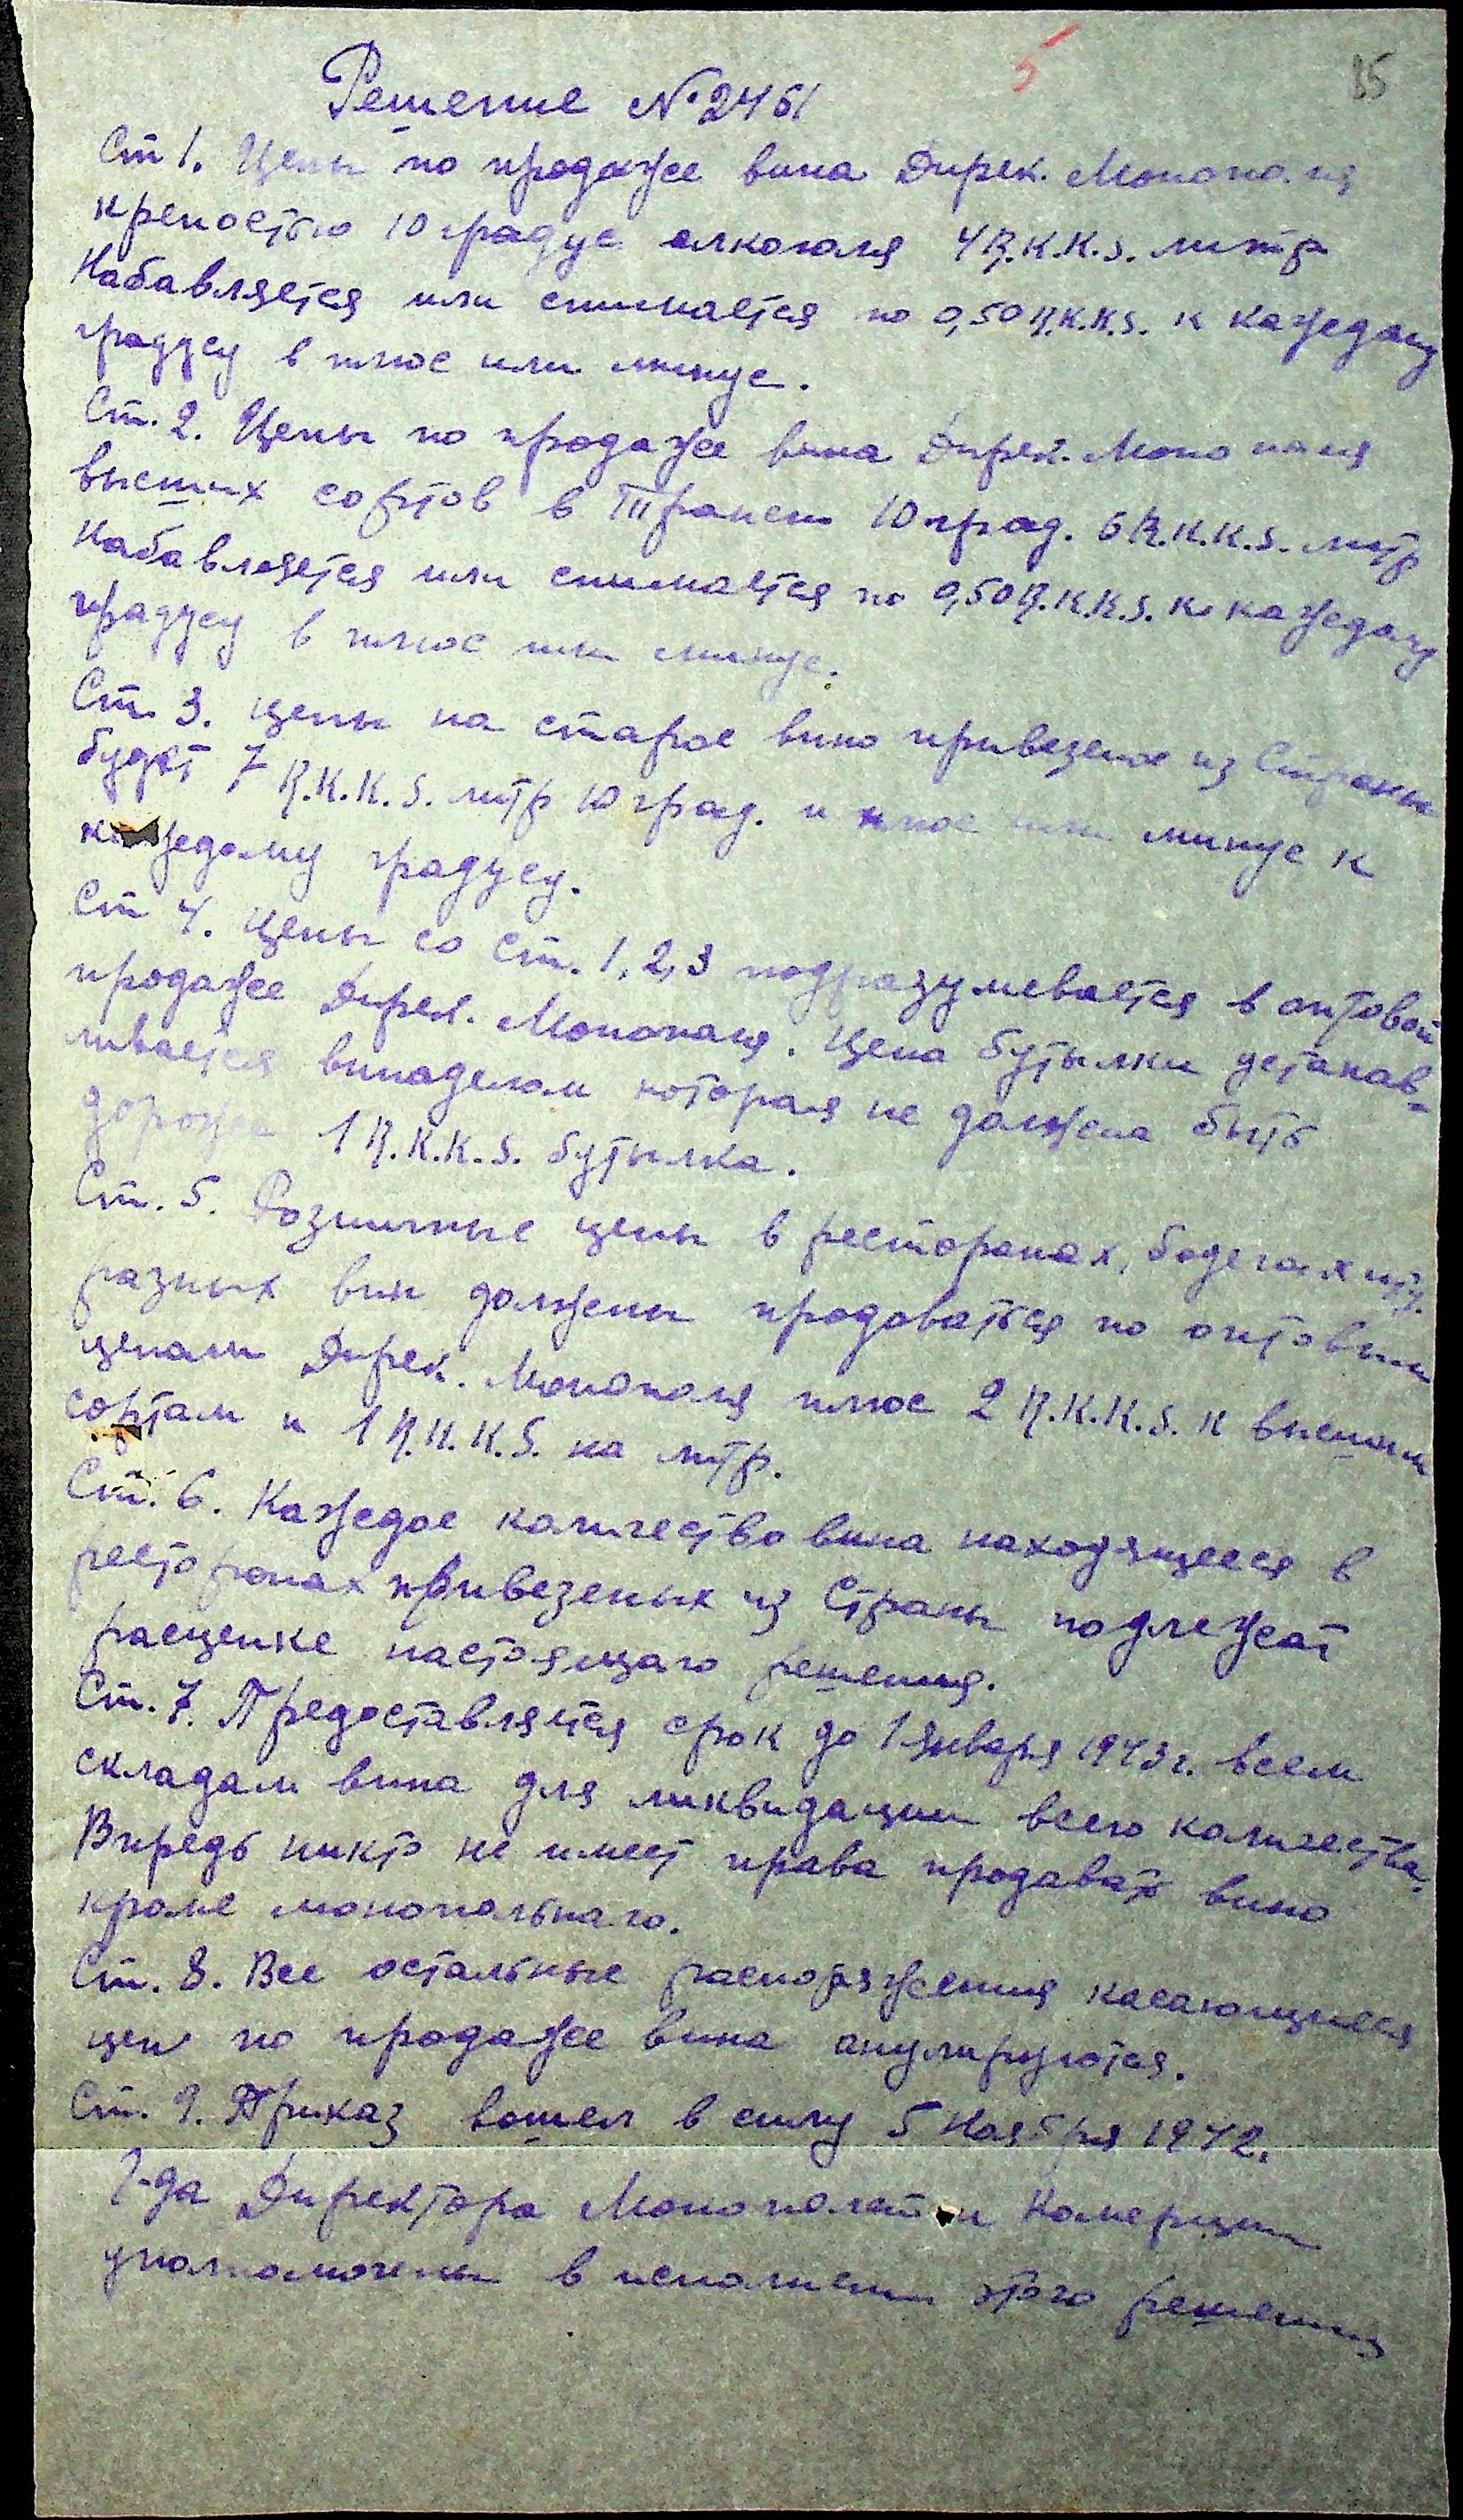 5
85
Решение № 2461
Ст 1. Цены по продаже вина Дирек. Монополия
крепостью 10 градус алкоголя 4 R.K.K.S. литр
Набавляется или снимается по 0,50 R.K.K.S. к каждому
градусу в плюс или минус.
Ст. 2. Цены по продаже вина Дирек. Монополия
высших сортов в Трансн. 10 град. 6 R.K.K.S. литр
набавляется или снимается по 0,50 R.K.K.S. к каждому
градусу в плюс или минус.
Ст. 3. Цены на старое вино привезеное из Страны
будет 7 R.K.K.S. литр 10 град. и плюс или минус к
каждому градусу.
Ст 4. Цены со Ст. 1, 2, 3 подразумевается в оптовой
продаже Дирек. Монополия. Цена бутылки устанав-
ливается виноделом которая не должена быть
дороже 1 R.K.K.S. бутылка.
Ст. 5. Розничные цены в ресторанах, бодегах и т.д.
разных вин должены продоваться по оптовым
ценам Дирек. Монополия плюс 2 R.K.K.S. к высшим
сортам и 1 R.K.K.S. на литр.
Ст. 6. Каждое количество вина находящееся в
ресторанах привезеных из Страны подлежат
расценке настоящаго решения.
Ст. 7. Предоставляется срок до 1 Января 1943 г. всем
складам вина для ликвидации всего количества.
Впредь никто не имеет права продавать вино
кроме монопольнаго.
Ст. 8. Все остальные распоряжения касающиеся
цен по продаже вина анулируются.
Ст. 9. Приказ вошел в силу 5 Ноября 1942.
Г-да Директора Монополии и Комерции
уполномочены в исполнении этого решения